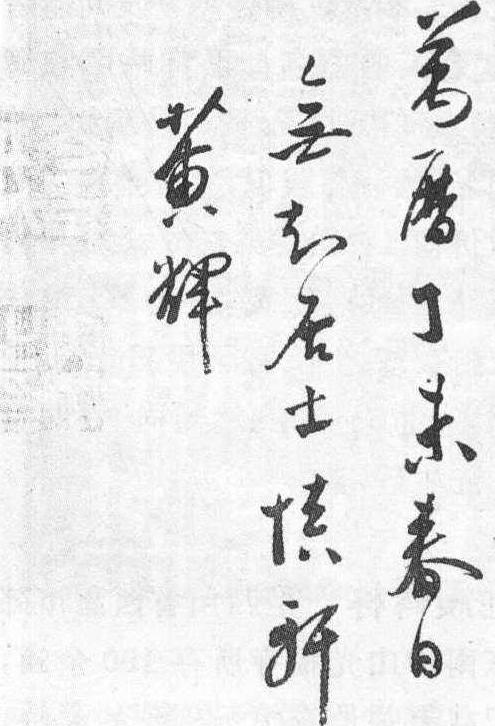 萬曆丁未春日
無知居士慎軒
黃輝